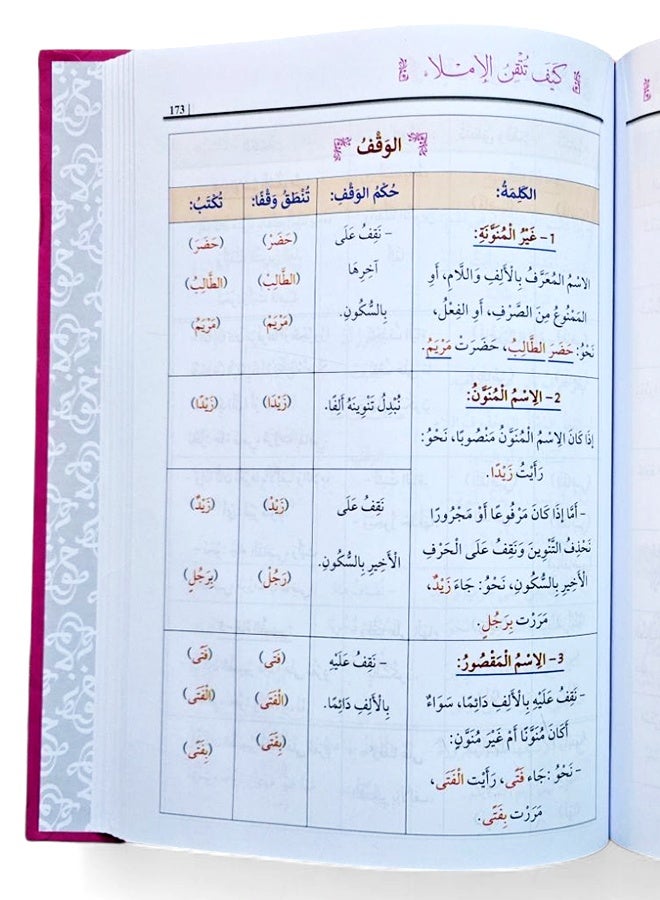 كَيْفَ تُتْقِنُ الإِمْلَاء
173
الوَقْفُ
الكَلِمَةُ: حُكْمُ الوَقْفِ: تُنْطَقُ وَقْفًا: تُكْتَبُ:
1- غَيْرُ الْمُنَوَّنَةِ:
الاسْمُ المُعَرَّفُ بِالْأَلِفِ وَاللَّامِ، أَوِ
المَمْنُوعُ مِنَ الصَّرْفِ، أَو الفِعْلُ،
نَحْوُ: حَضَرَ الطَّالِبُ، حَضَرَتْ مَرْيَمُ.
- نَقِفُ عَلَى
آخِرِهَا
بِالسُّكُونِ.
(حَضَرْ)
(الطَّالِبْ)
(مَرْيَمْ)
(حَضَرَ)
(الطَّالِبُ)
(مَرْيَمُ)
2- الِاسْمُ الْمُنَوَّنُ:
إِذَا كَانَ الِاسْمُ الْمُنَوَّنُ مَنْصُوبًا، نَحْوُ:
رَأَيْتُ زَيْدًا.
- أَمَّا إِذَا كَانَ مَرْفُوعًا أَوْ مَجْرُورًا
نَحْذِفُ التَّنْوِينَ وَنَقِفُ عَلَى الْحَرْفِ
الْأَخِيرِ بِالسُّكُونِ، نَحْوُ: جَاءَ زَيْدٌ،
مَرَرْت بِرَجُلٍ.
نُبْدِلُ تَنْوِينَهُ أَلِفًا.
(زَيْدَا)
(زَيْدًا)
نَقِفُ عَلَى
الْأَخِيرِ بِالسُّكُونِ.
(زَيْدْ)
(رَجُلْ)
(زَيْدٌ)
(بِرَجُلٍ)
3- الِاسْمُ الْمَقْصُورُ:
- نَقِفُ عَلَيْهِ بِالْأَلِفِ دَائِمًا، سَوَاءٌ
أَكَانَ مُنَوَّنًا أَمْ غَيْرَ مُنَوَّنٍ:
- نَحْوُ: جَاء فَتًى، رَأَيْت الْفَتَى،
مَرَرْت بِفَتًى.
- نَقِفُ عَلَيْهِ
بِالْأَلِفِ دَائِمًا.
(فَتَى)
(الْفَتَى)
(بِفَتَى)
(فَتًى)
(الْفَتَى)
(بِفَتًى)